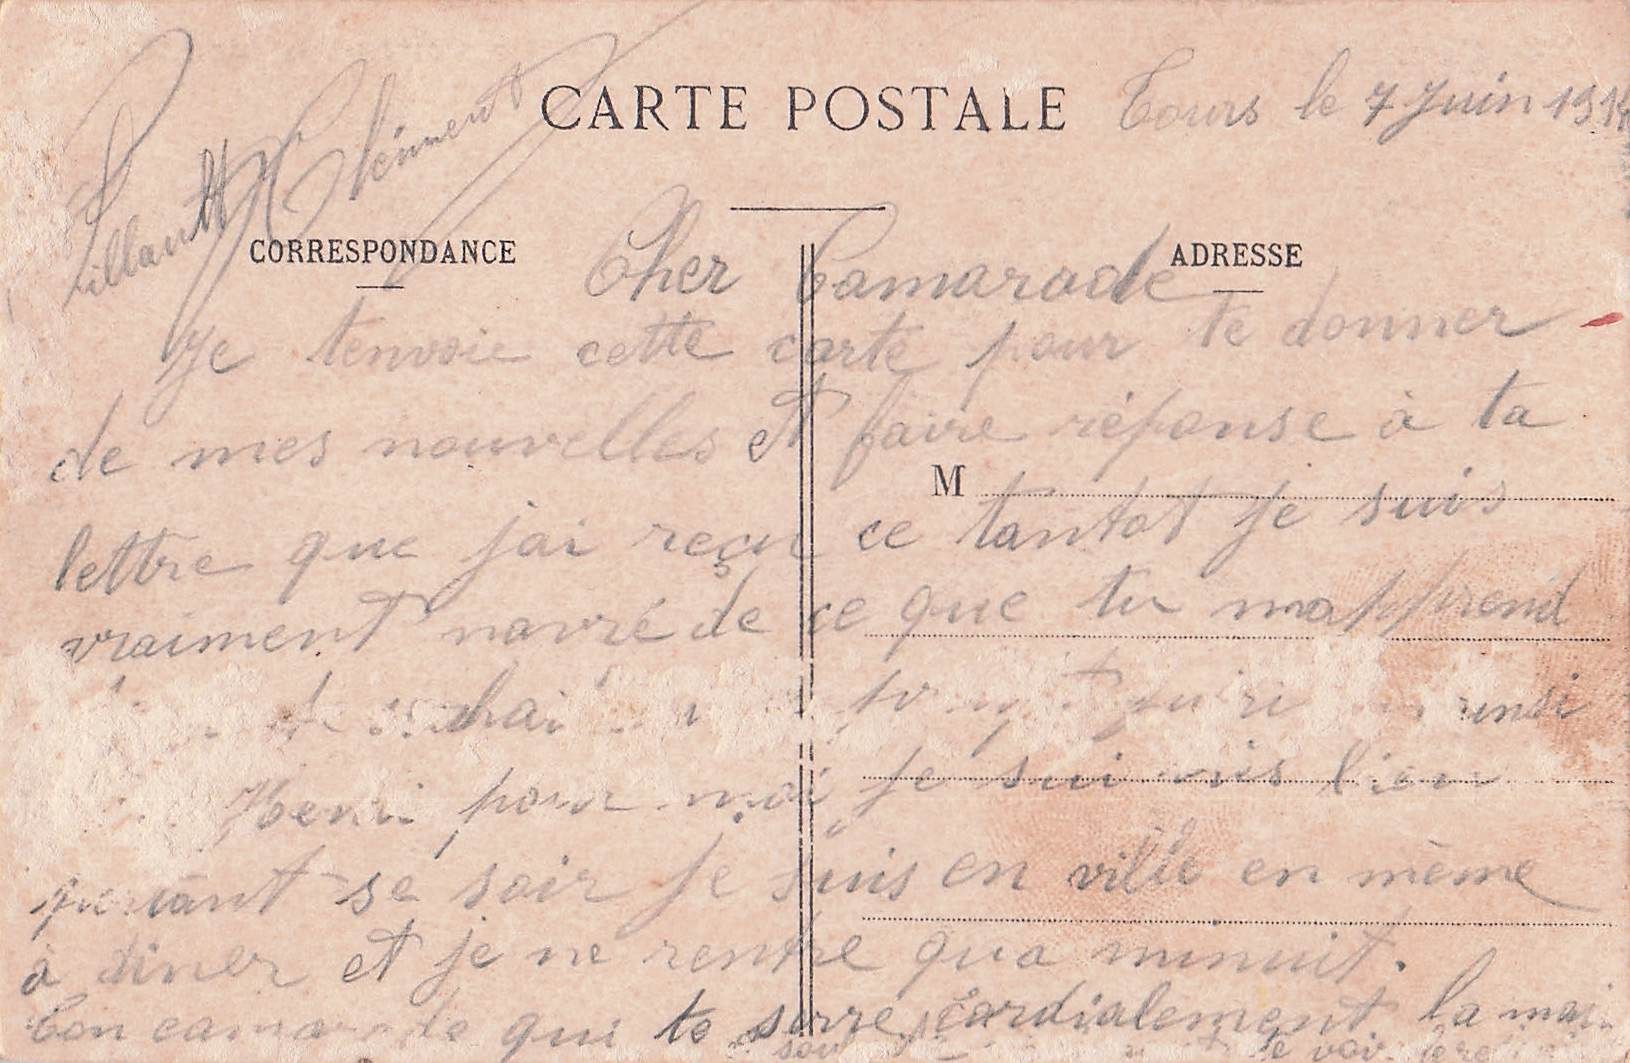 CARTE POSTALE
Tours le 7 Juin 191
Clément
CORRESPONDANCE
ADRESSE
Cher Camarade
Je tenvoie cette carte pour te donner
de mes nouvelles et faire réponse à ta
M
lettre que jai reçu ce tantot je suis
vraiment navré de ce que tu mapprend
Henri pour moi je
se soir je suis en ville en même
à diner et je ne rentre qua minuit.
Ton camarade qui te serre cordialement la main